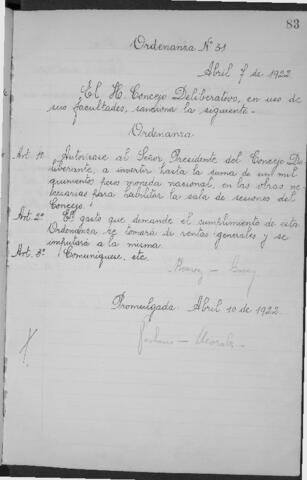 83
Ordenanza Nº 51
Abril 7 de 1922
El H. Concejo Deliberativo, en uso de
sus facultades, sanciona la siguiente.
Ordenanza
Art. 1º Autorízase al Señor Presidente del Concejo De-
liberante, a invertir hasta la suma de un mil
quinientos pesos moneda nacional, en las obras ne-
cesarias para habilitar la sala de sesiones del
Concejo.
Art. 2º El gasto que demande el cumplimiento de esta
Ordenanza se tomará de rentas generales y se
imputará a la misma.
Art. 3º Comuníquese, etc.
Promulgada: Abril 10 de 1922.
Morales